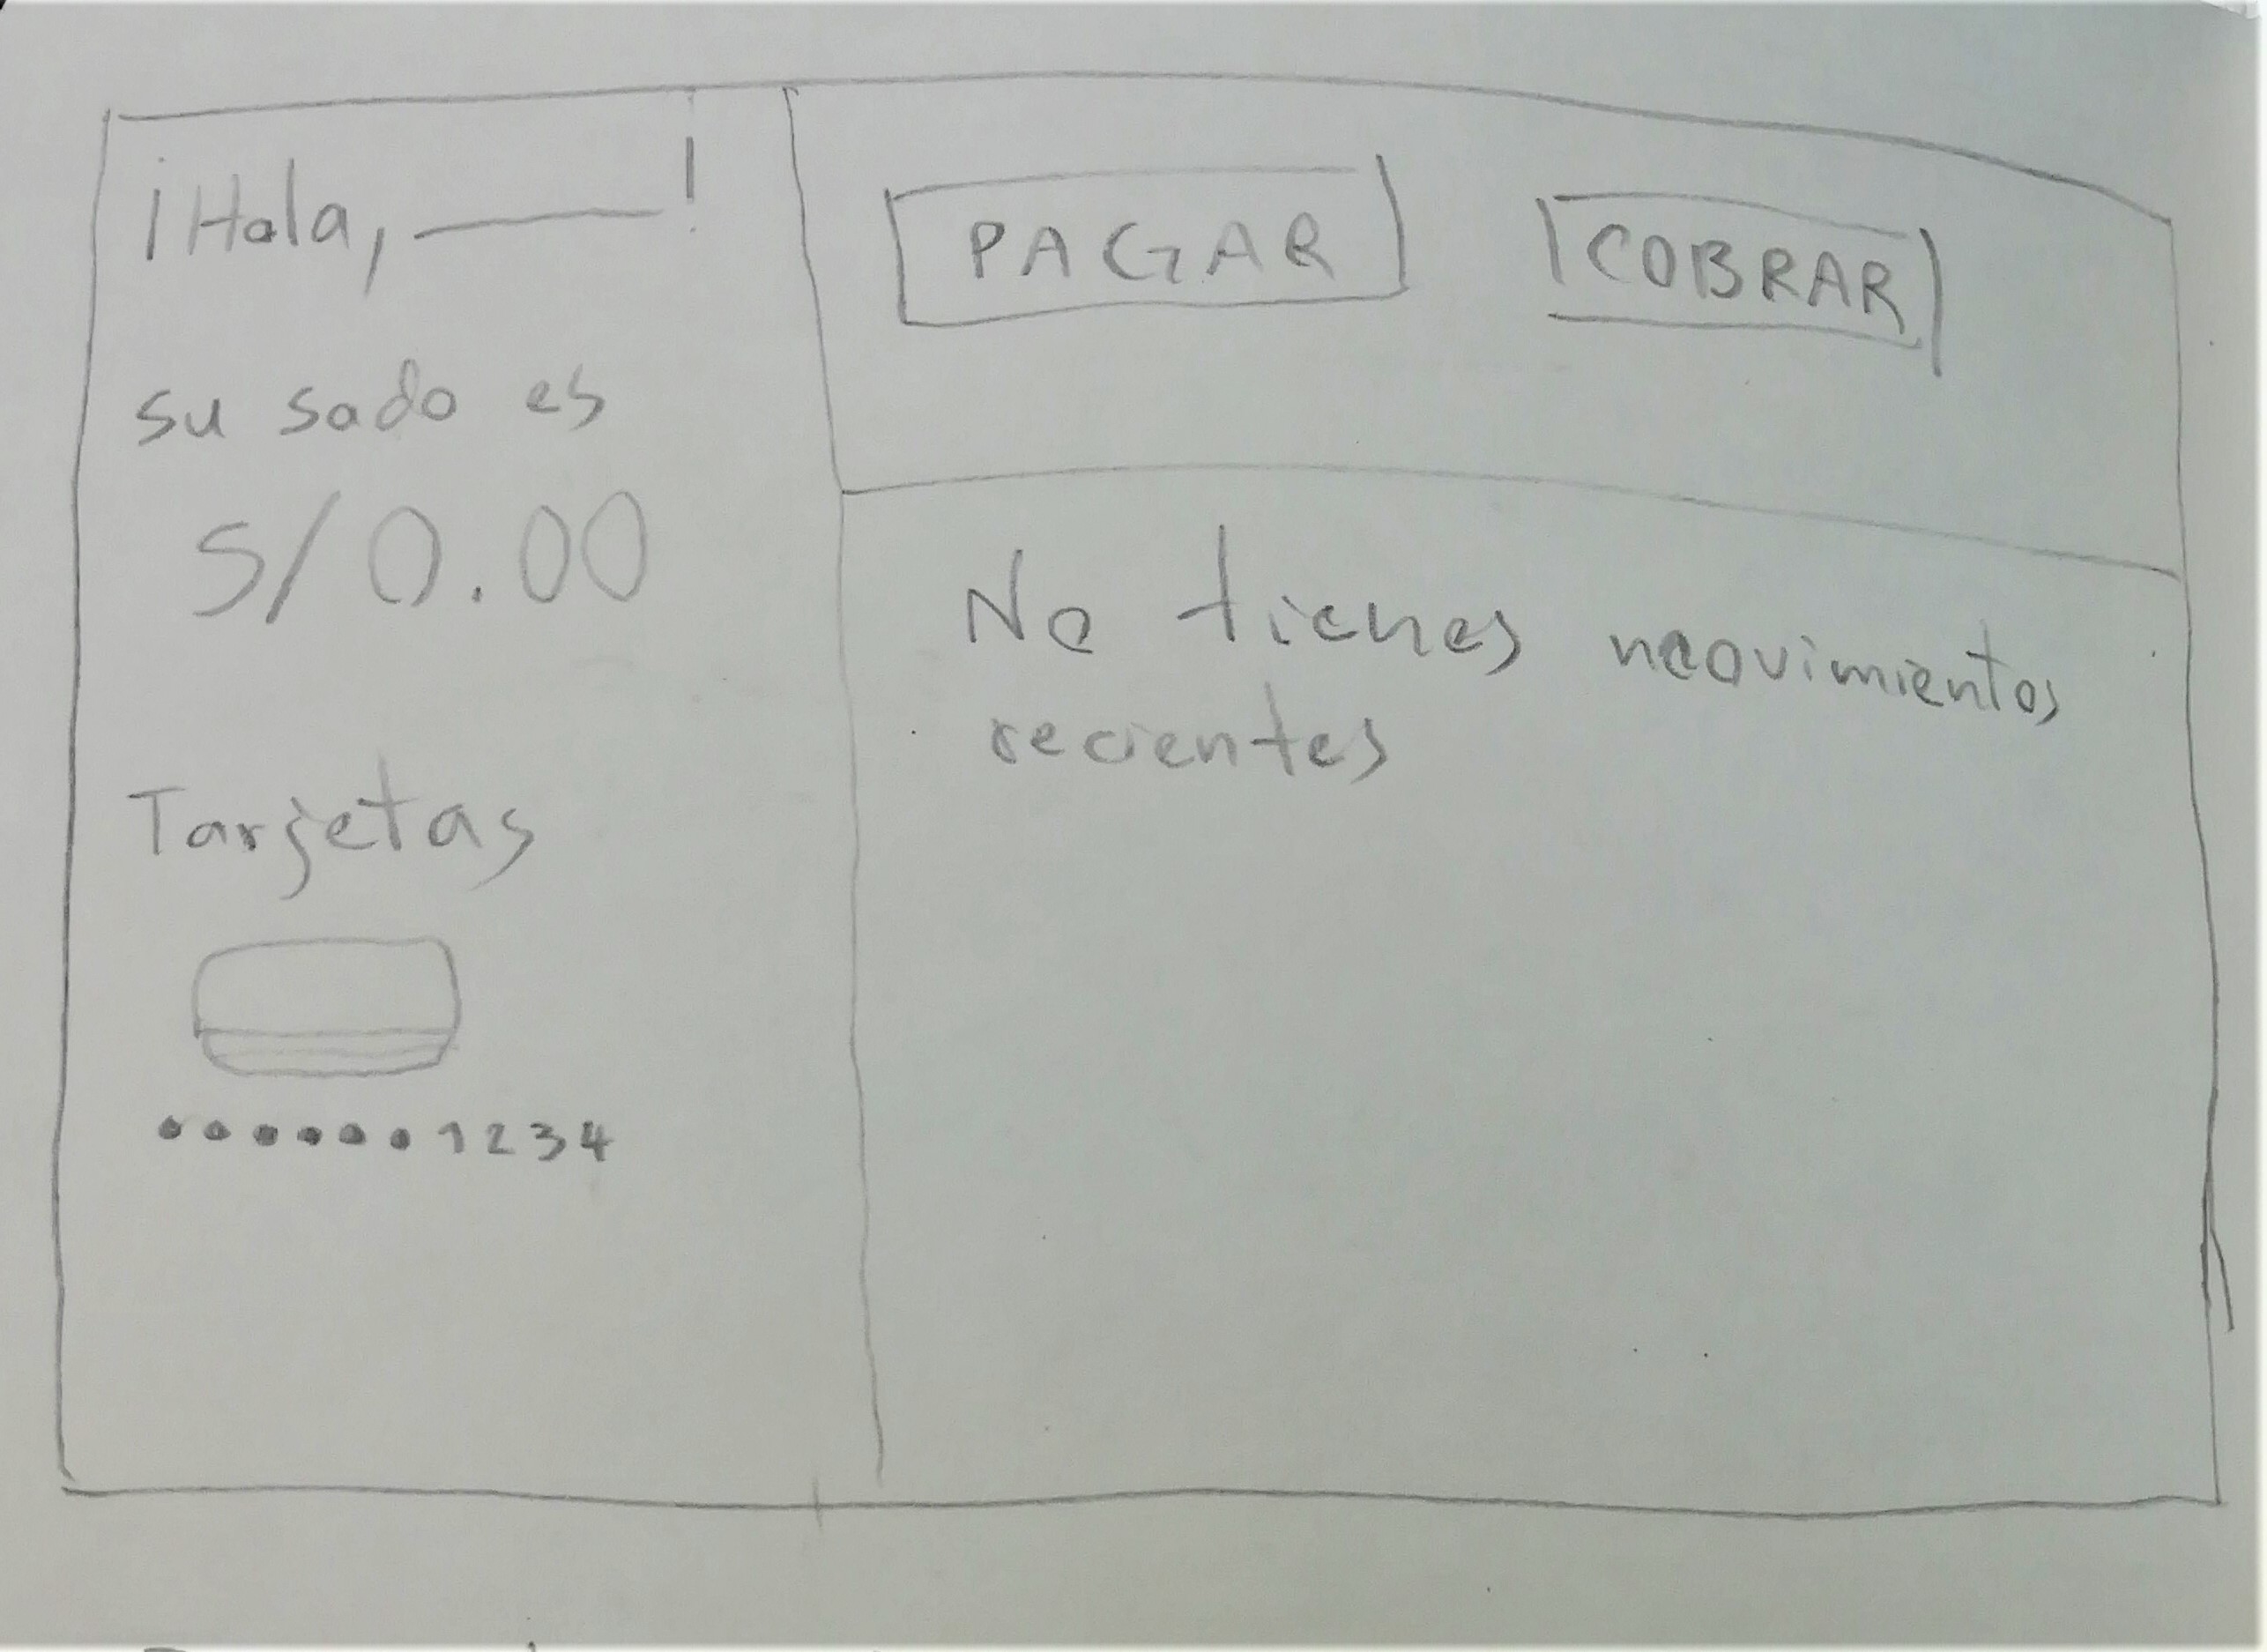 ¡Hola, ______!
su sado es
S/ 0.00
Tarjetas
••••••1234
PAGAR
COBRAR
No tienes movimientos
recientes